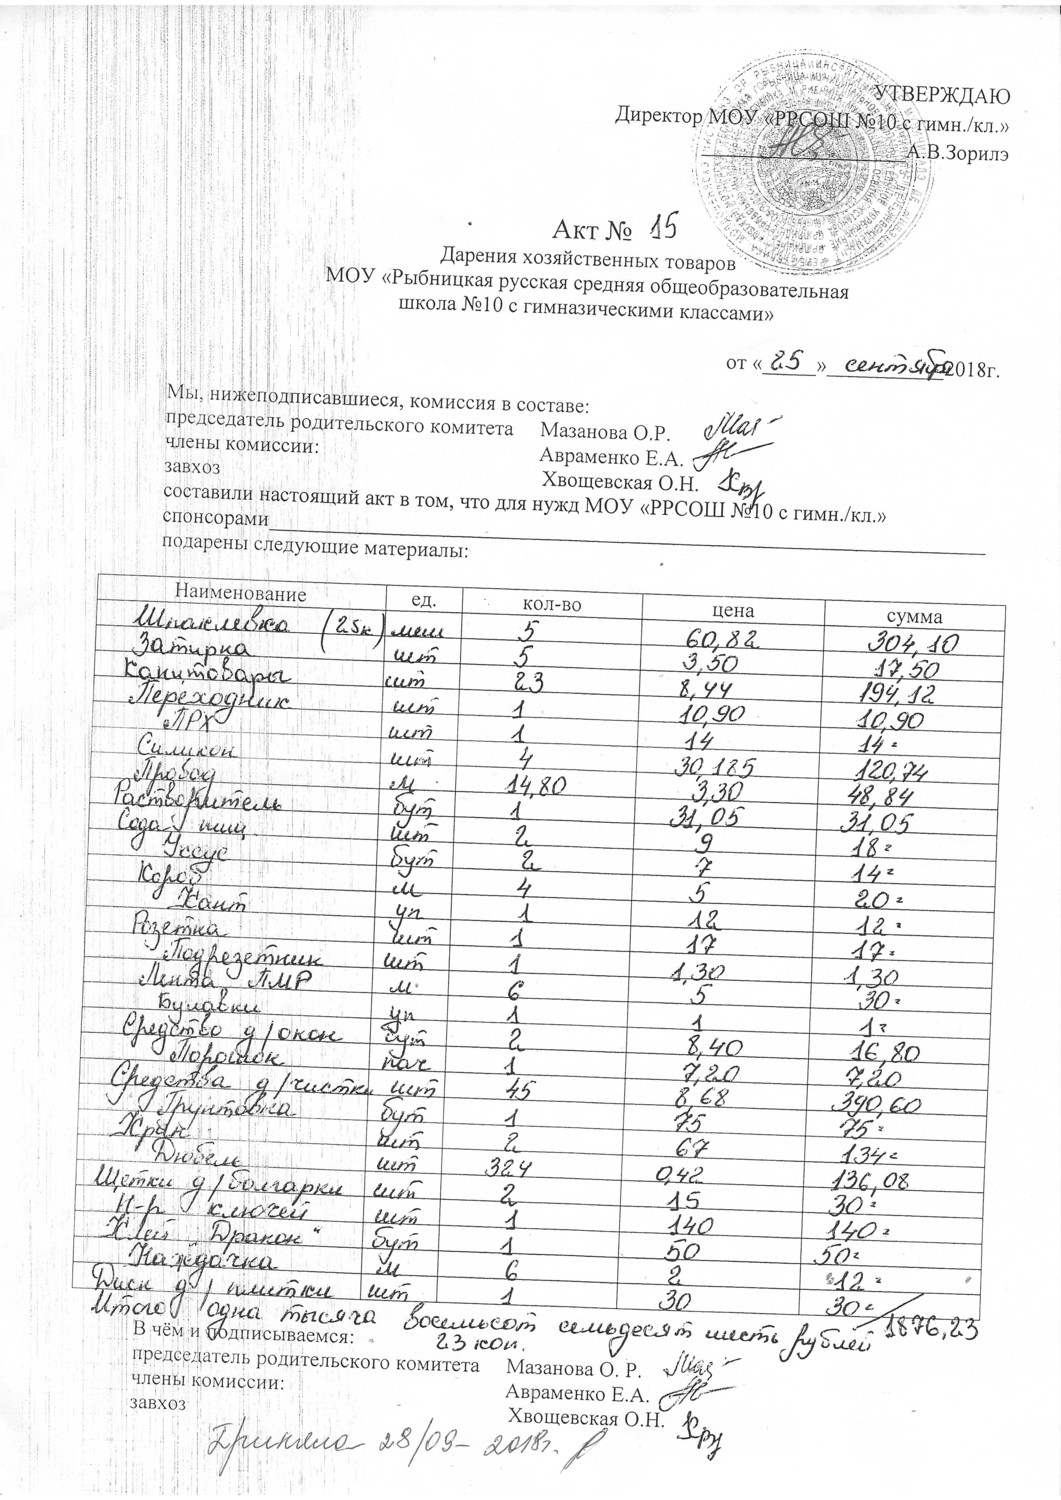 УТВЕРЖДАЮ
Директор МОУ «РРСОШ №10 с гимн./кл.»
А.В.Зорилэ
Акт № 15
Дарения хозяйственных товаров
МОУ «Рыбницкая русская средняя общеобразовательная
школа №10 с гимназическими классами»
от « 25 » сентября 2018г.
Мы, нижеподписавшиеся, комиссия в составе:
председатель родительского комитета Мазанова О.Р.
члены комиссии: Авраменко Е.А.
завхоз Хвощевская О.Н.
составили настоящий акт в том, что для нужд МОУ «РРСОШ №10 с гимн./кл.»
спонсорами
подарены следующие материалы:
Наименование ед. кол-во цена сумма
Шпаклевка (25к) меш 5 60,82 304,10
Затирка шт 5 3,50 17,50
Канцтовары шт 23 8,44 194,12
Переходник шт 1 10,90 10,90
ПРХ шт 1 14 14=
Силикон шт 4 30,185 120,74
Провод м 14,80 3,30 48,84
Растворитель бут 1 31,05 31,05
Сода пищ. шт 2 9 18=
Уксус бут 2 7 14=
Короб м 4 5 20=
Кант уп 1 12 12=
Розетка шт 1 17 17=
Подрезетник шт 1 1,30 1,30
Лента ПМР м 6 5 30=
Булавки уп 1 1 1=
Средство д/окон бут 2 8,40 16,80
Порошок пач 1 7,20 7,20
Средства д/чистки шт 45 8,68 390,60
Грунтовка бут 1 75 75=
Кран шт 2 67 134=
Дюбель шт 324 0,42 136,08
Щетки д/болгарки шт 2 15 30=
Н-р ключей шт 1 140 140=
Клей „Дракон“ бут 1 50 50=
Наждачка м 6 2 12=
Диск д/плитки шт 1 30 30=
Итого одна тысяча восемьсот семьдесят шесть рублей 1876,23
23 коп.
В чём и подписываемся:
председатель родительского комитета Мазанова О. Р.
члены комиссии: Авраменко Е.А.
завхоз Хвощевская О.Н.
Приняла 28/09- 2018г.